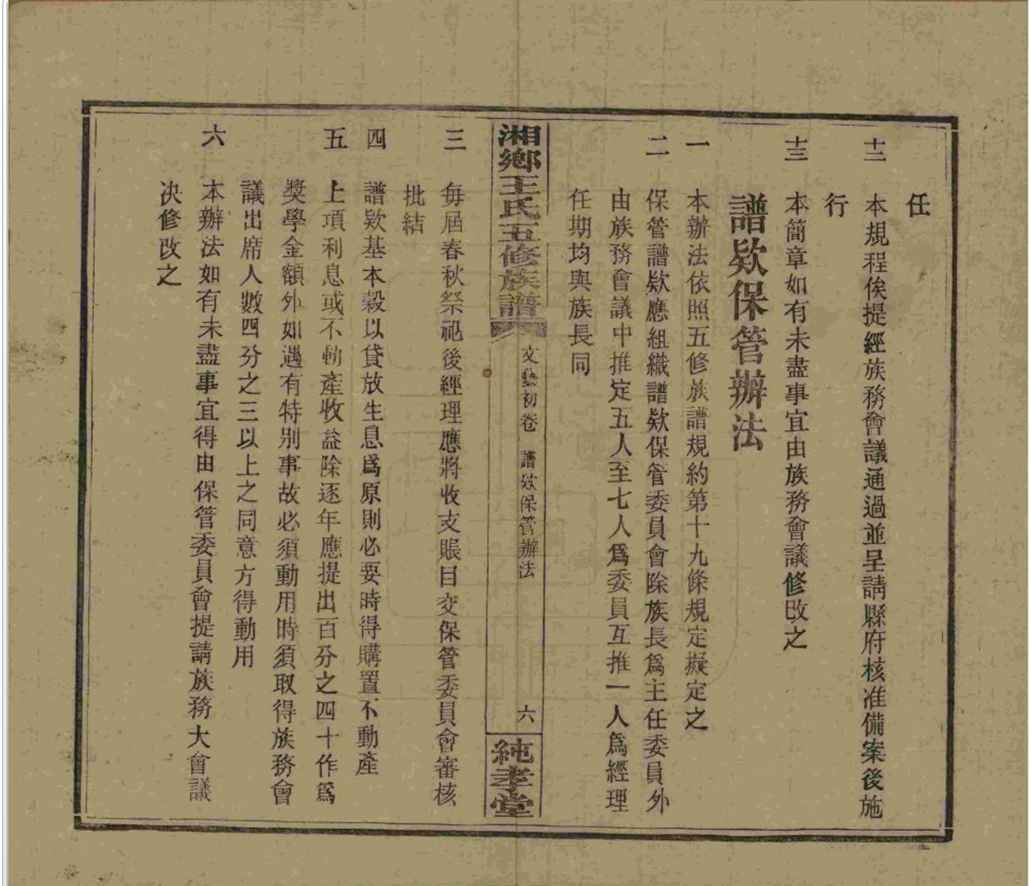 任
十二 本規程俟提經族務會議通過並呈請縣府核准備案後施
行
十三 本簡章如有未盡事宜由族務會議修改之
譜欵保管辦法
一 本辦法依照五修族譜規約第十九條規定擬定之
二 保管譜欵應組織譜欵保管委員會除族長爲主任委員外
由族務會議中推定五人至七人爲委員互推一人爲經理
任期均與族長同
湘鄉王氏五修族譜 文藝初卷 譜欵保管辦法 六 純孝堂
三 每屆春秋祭祀後經理應將收支賬目交保管委員會審核
批結
四 譜欵基本穀以貸放生息爲原則必要時得購置不動產
五 上項利息或不動產收益除逐年應提出百分之四十作爲
獎學金額外如遇有特别事故必須動用時須取得族務會
議出席人數四分之三以上之同意方得動用
六 本辦法如有未盡事宜得由保管委員會提請族務大會議
决修改之